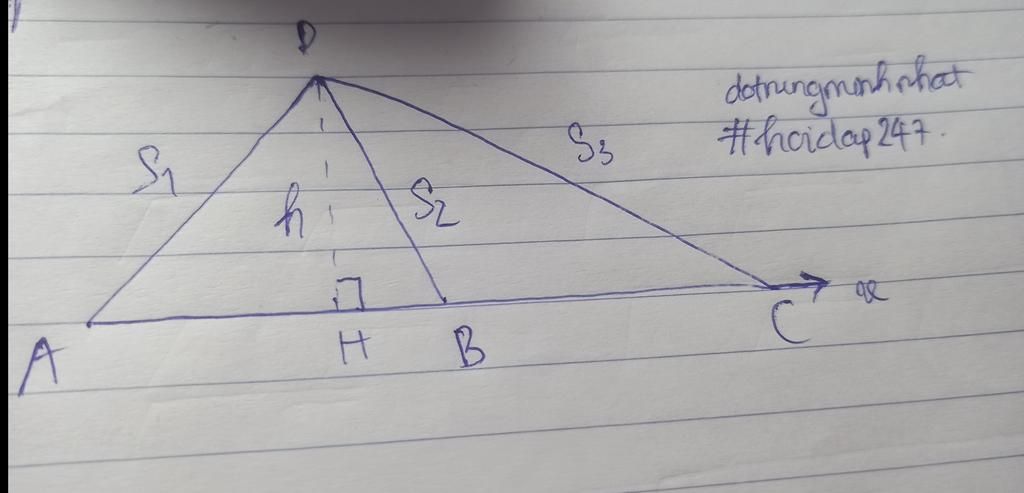 D
dotrungminhnhat
#hoidap247.
S1
S3
h
S2
A
H
B
C
x